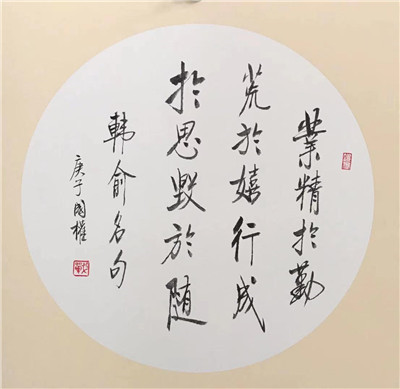 業精於勤
荒於嬉行成
於思毀於随
韩俞名句
庚子國權